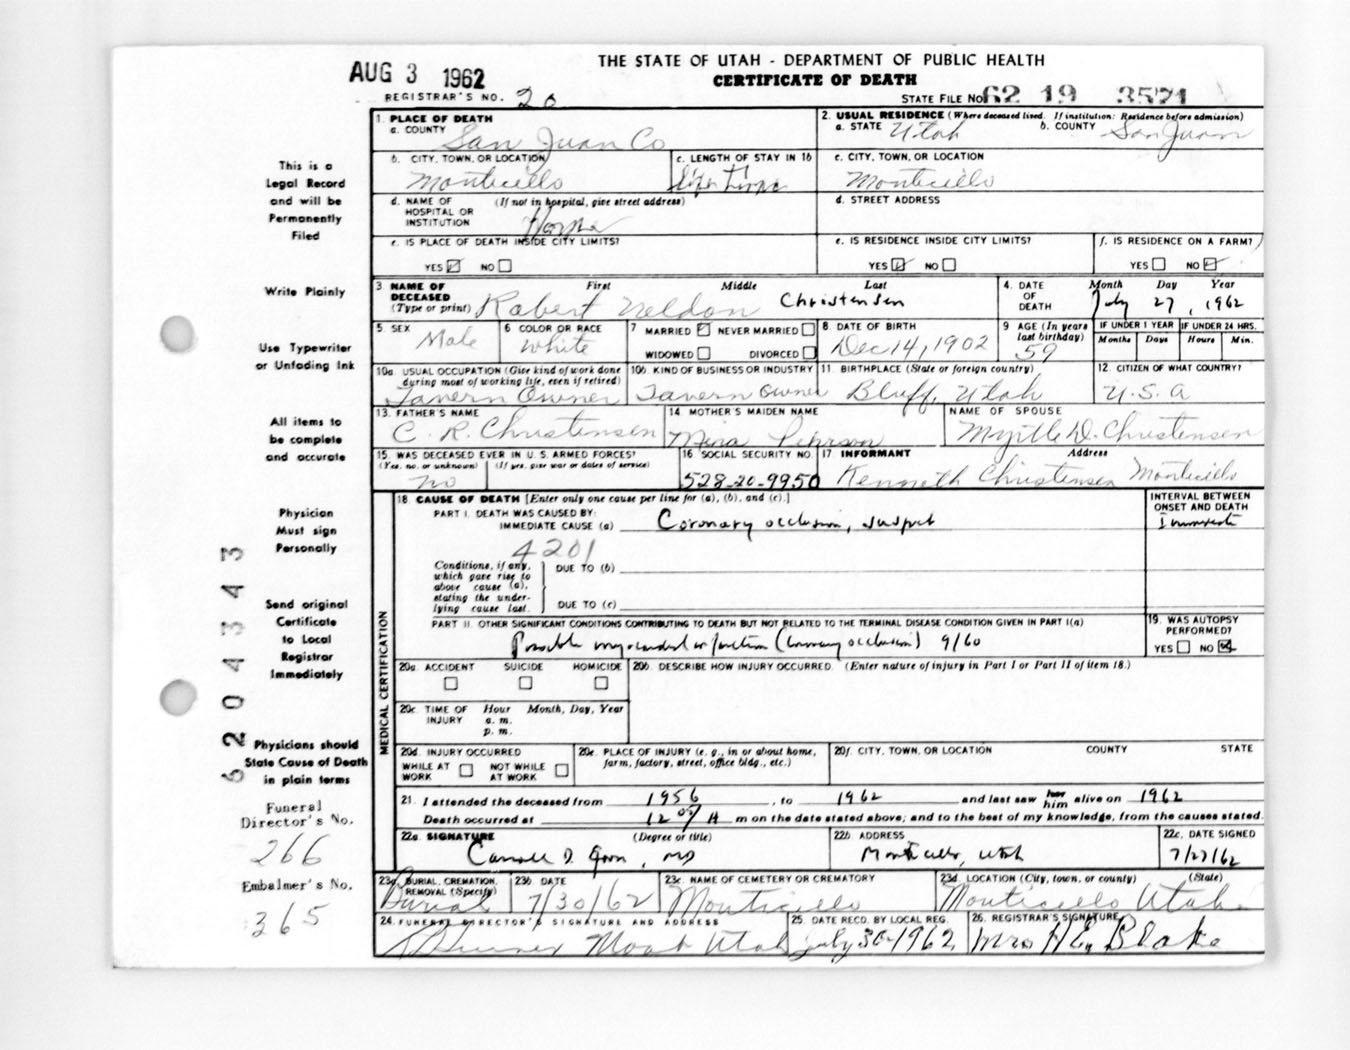 AUG 3 1962
THE STATE OF UTAH - DEPARTMENT OF PUBLIC HEALTH
CERTIFICATE OF DEATH
REGISTRAR'S NO. 20
STATE FILE NO. 62 19 3571
This is a
Legal Record
and will be
Permanently
Filed
Write Plainly
Use Typewriter
or Unfading Ink
All items to
be complete
and accurate
Physician
Must sign
Personally
Send original
Certificate
to Local
Registrar
Immediately
Physicians should
State Cause of Death
in plain terms
Funeral
Director's No.
266
Embalmer's No.
365
6204343
1. PLACE OF DEATH
a. COUNTY San Juan Co
2. USUAL RESIDENCE (Where deceased lived. If institution: Residence before admission)
a. STATE Utah b. COUNTY San Juan
b. CITY, TOWN, OR LOCATION Monticello
c. LENGTH OF STAY IN 1b Life Time
c. CITY, TOWN, OR LOCATION Monticello
d. NAME OF HOSPITAL OR INSTITUTION (If not in hospital, give street address) Home
d. STREET ADDRESS
e. IS PLACE OF DEATH INSIDE CITY LIMITS? YES NO
e. IS RESIDENCE INSIDE CITY LIMITS? YES NO
f. IS RESIDENCE ON A FARM? YES NO
3 NAME OF DECEASED (Type or print) First Middle Last
Robert Neldon Christensen
4. DATE OF DEATH Month Day Year
July 27, 1962
5. SEX Male
6 COLOR OR RACE White
7 MARRIED NEVER MARRIED WIDOWED DIVORCED
8 DATE OF BIRTH Dec 14, 1902
9 AGE (In years last birthday) 59
IF UNDER 1 YEAR Months Days
IF UNDER 24 HRS. Hours Min.
10a. USUAL OCCUPATION (Give kind of work done during most of working life, even if retired) Tavern Owner
10b KIND OF BUSINESS OR INDUSTRY Tavern Owner
11. BIRTHPLACE (State or foreign country) Bluff, Utah
12. CITIZEN OF WHAT COUNTRY? U.S.A
13. FATHER'S NAME C. R. Christensen
14 MOTHER'S MAIDEN NAME Mina Pehrson
NAME OF SPOUSE Myrtle D. Christensen
15. WAS DECEASED EVER IN U. S. ARMED FORCES? (Yes, no, or unknown) (If yes, give war or dates of service) no
16 SOCIAL SECURITY NO. 528-20-9950
17 INFORMANT Address Kenneth Christensen Monticello
MEDICAL CERTIFICATION
18 CAUSE OF DEATH [Enter only one cause per line for (a), (b), and (c).]
INTERVAL BETWEEN ONSET AND DEATH
PART I. DEATH WAS CAUSED BY:
IMMEDIATE CAUSE (a) Coronary occlusion, suspect
4201
Conditions, if any, which gave rise to above cause (a), stating the underlying cause last.
DUE TO (b)
DUE TO (c)
PART II. OTHER SIGNIFICANT CONDITIONS CONTRIBUTING TO DEATH BUT NOT RELATED TO THE TERMINAL DISEASE CONDITION GIVEN IN PART I(a)
Possible myocardial infarction (coronary occlusion) 9/60
19. WAS AUTOPSY PERFORMED? YES NO
20a. ACCIDENT SUICIDE HOMICIDE
20b. DESCRIBE HOW INJURY OCCURRED. (Enter nature of injury in Part I or Part II of item 18.)
20c. TIME OF INJURY Hour Month, Day, Year
a. m.
p. m.
20d. INJURY OCCURRED
WHILE AT WORK NOT WHILE AT WORK
20e. PLACE OF INJURY (e. g., in or about home, farm, factory, street, office bldg., etc.)
20f. CITY, TOWN, OR LOCATION COUNTY STATE
21. I attended the deceased from 1956, to 1962 and last saw her him alive on 1962
Death occurred at 12 05 A m on the date stated above; and to the best of my knowledge, from the causes stated.
22a. SIGNATURE (Degree or title) MD
22b ADDRESS Monticello, Utah
22c. DATE SIGNED 7/27/62
23a. BURIAL, CREMATION, REMOVAL (Specify) Burial
23b. DATE 7/30/62
23c. NAME OF CEMETERY OR CREMATORY Monticello
23d. LOCATION (City, town, or county) (State) Monticello Utah
24. FUNERAL DIRECTOR'S SIGNATURE AND ADDRESS Moab Utah
25. DATE RECD. BY LOCAL REG. July 30-1962
26. REGISTRAR'S SIGNATURE Mrs H E, Blake